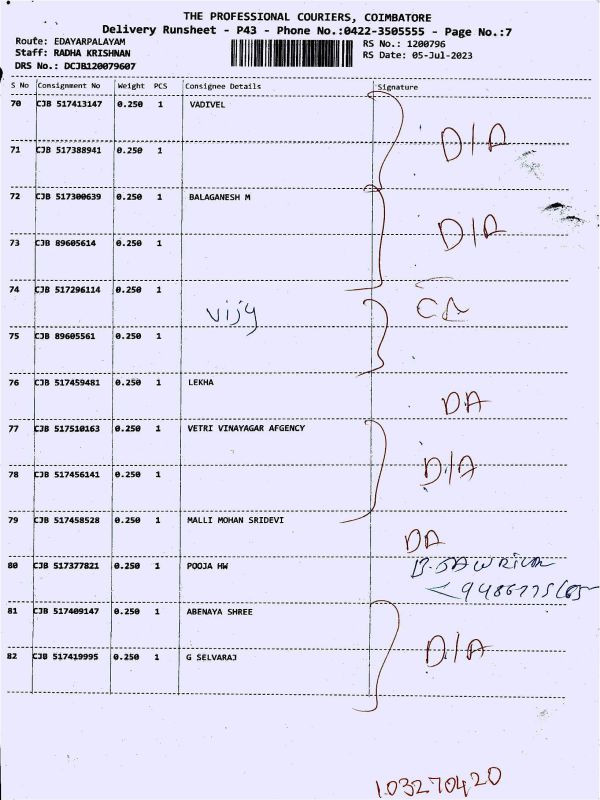 THE PROFESSIONAL COURIERS, COIMBATORE
Delivery Runsheet - P43 - Phone No.:0422-3505555 - Page No.:7
Route: EDAYARPALAYAM
Staff: RADHA KRISHNAN
DRS No.: DCJB120079607
RS No.: 1200796
RS Date: 05-Jul-2023
S No Consignment No Weight PCS Consignee Details Signature
70 CJB 517413147 0.250 1 VADIVEL
D/A
71 CJB 517388941 0.250 1
72 CJB 517300639 0.250 1 BALAGANESH M
D/A
73 CJB 89605614 0.250 1
74 CJB 517296114 0.250 1
vijy
75 CJB 89605561 0.250 1
76 CJB 517459481 0.250 1 LEKHA
DA
77 CJB 517510163 0.250 1 VETRI VINAYAGAR AFGENCY
D/A
78 CJB 517456141 0.250 1
79 CJB 517458528 0.250 1 MALLI MOHAN SRIDEVI
DA
80 CJB 517377821 0.250 1 POOJA HW
81 CJB 517409147 0.250 1 ABENAYA SHREE
D/A
82 CJB 517419995 0.250 1 G SELVARAJ
103270420